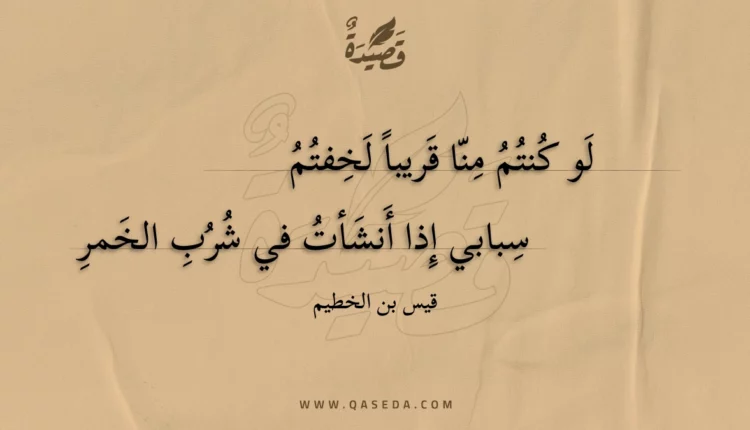 قَصِيْدَةٌ
لَو كُنتُمُ مِنّا قَريباً لَخِفتُمُ
سِبابي إِذا أَنشَأتُ في شُرُبِ الخَمرِ
قيس بن الخطيم
WWW.QASEDA.COM